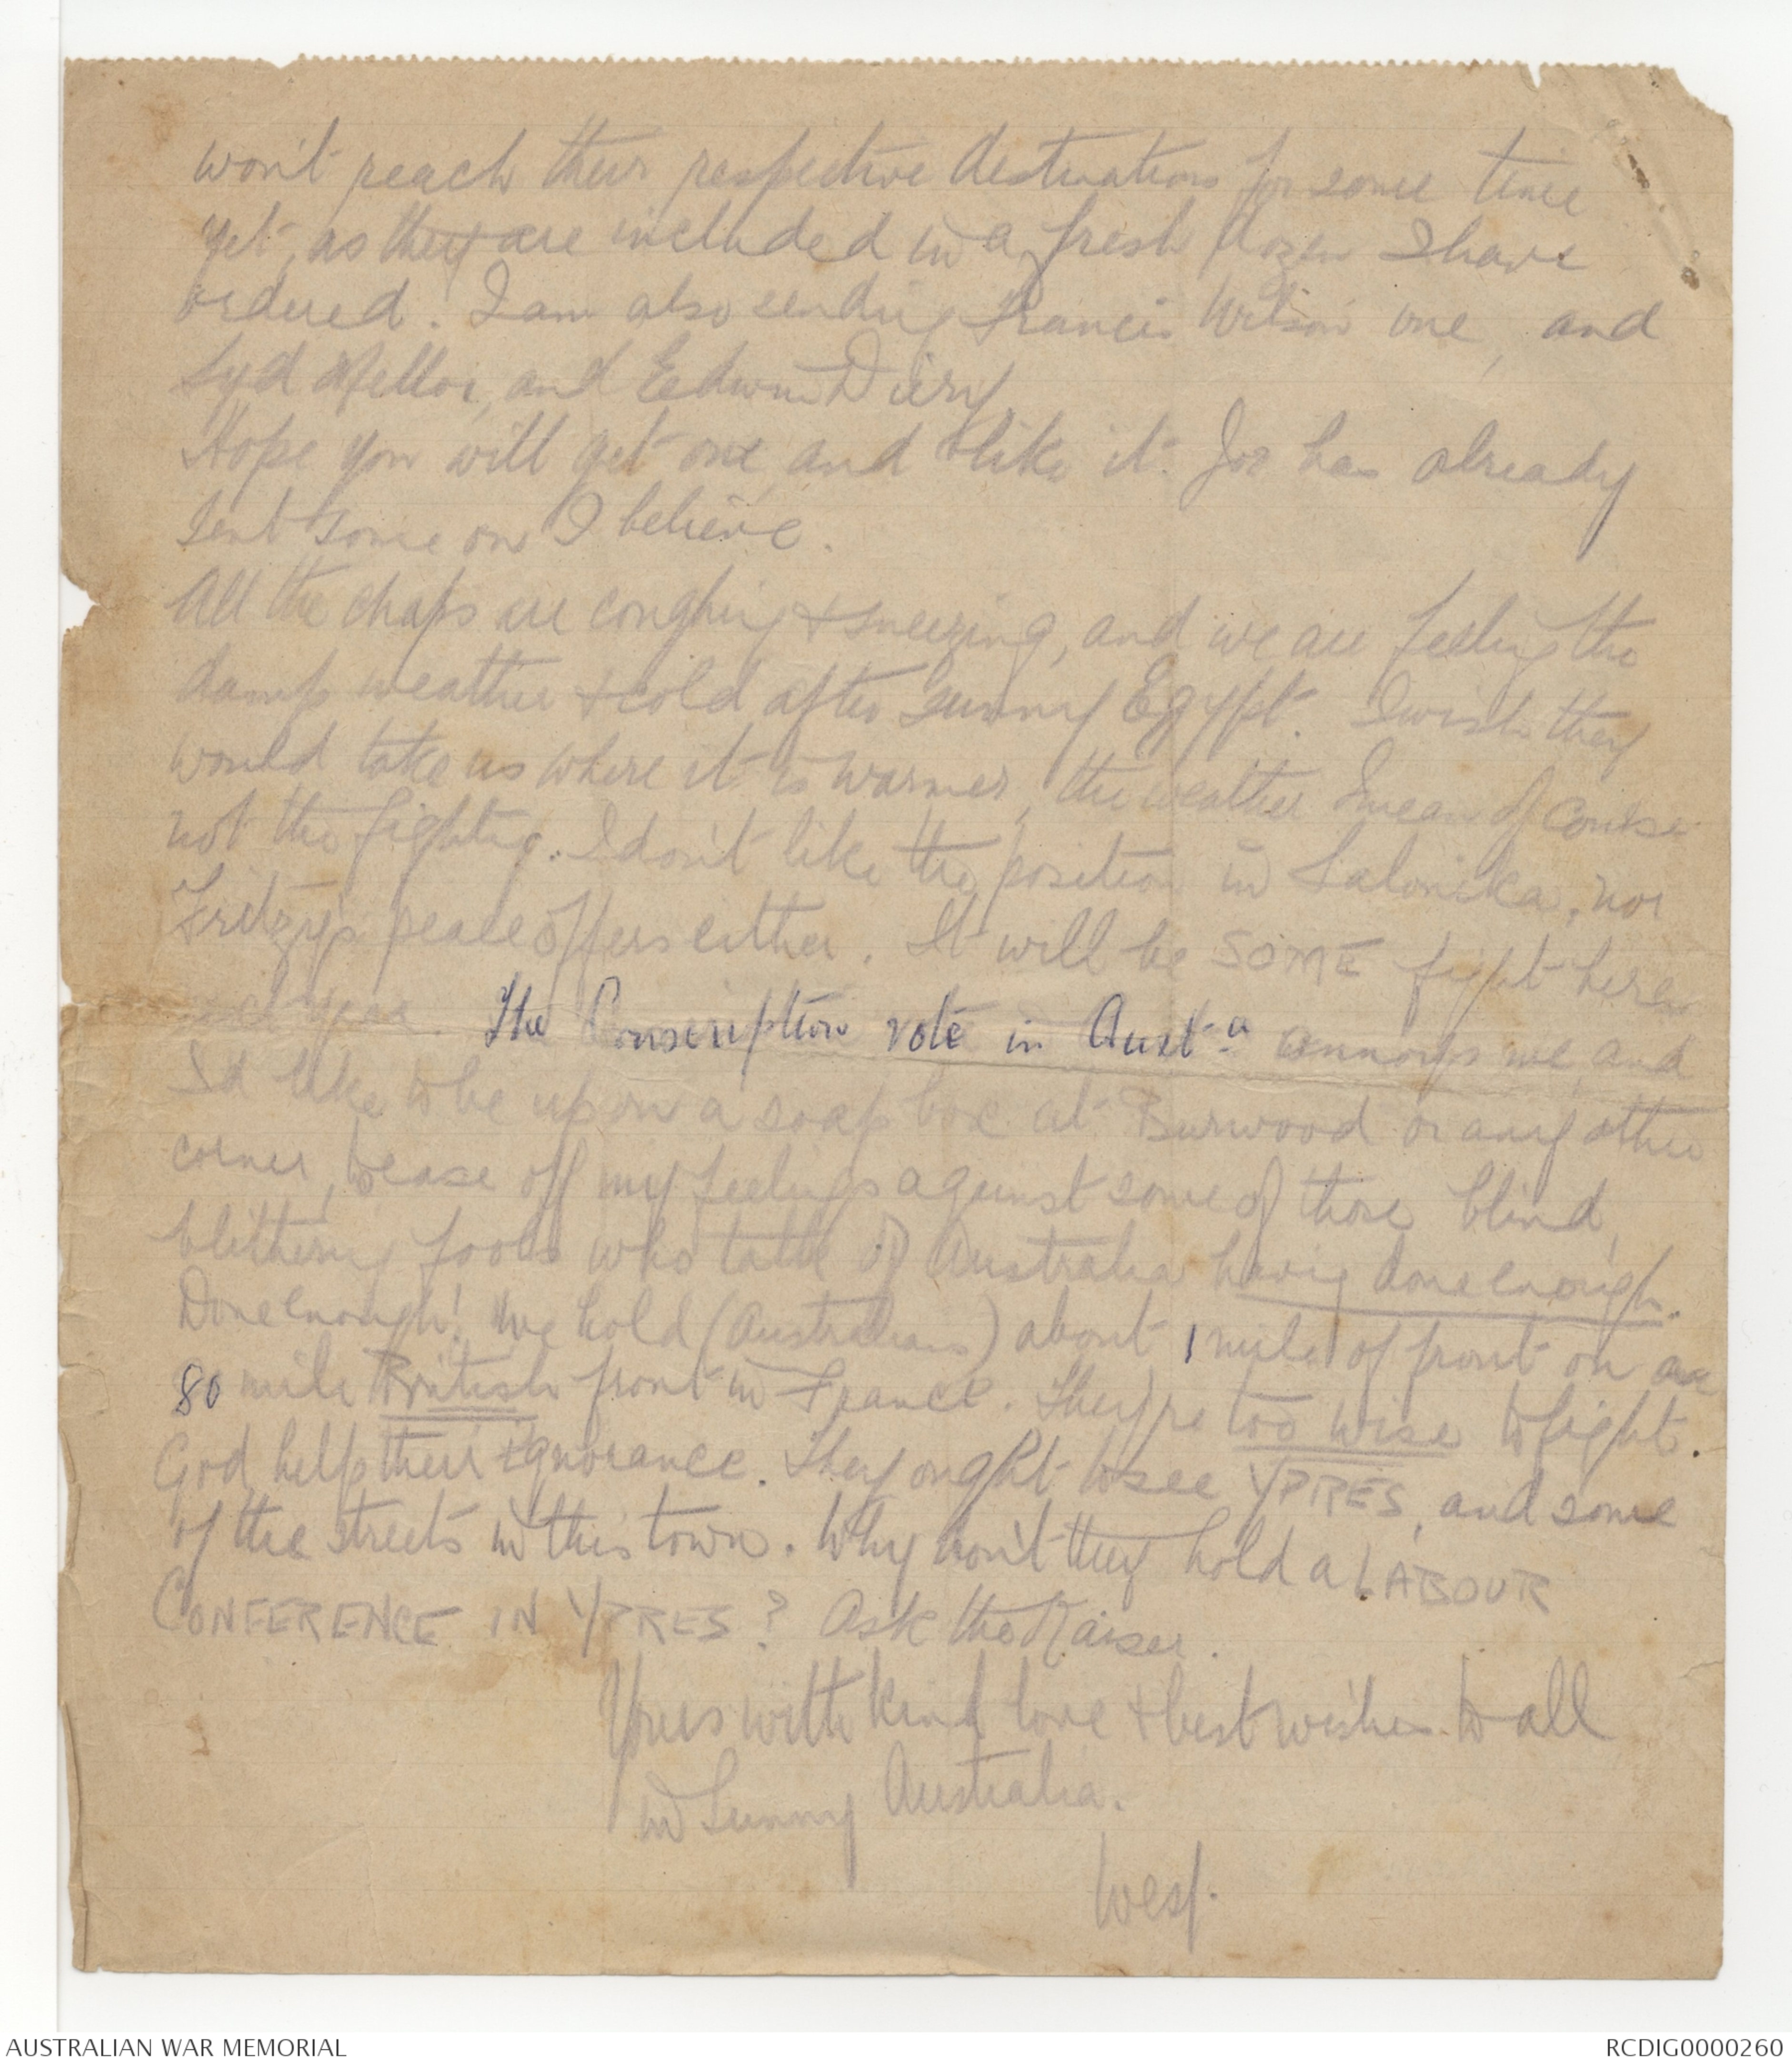 won't reach their respective destinations for some time
yet, as they are included in a fresh dozen I have
ordered. I am also sending Francis Wilson one, and
Syd Mellor, and Edwin
Hope you will get one and like it. Joe has already
sent some on I believe.
All the chaps are coughing & sneezing, and we are feeling the
damp weather & cold after Sunny Egypt. I wish they
would take us where it is warmer, the weather I mean of course
not the fighting. I don't like the position in Salonika, nor
Fritzy's peace offers either. It will be SOME fight here
year. The Conscription vote in Aust.a annoys me, and
I'd like to be up on a soap box at Burwood or any other
corner, to ease off my feelings against some of those blind,
blithering fools who talk of Australia having done enough.
Done enough! We hold (Australians) about 1 mile of front on an
80 mile British front in France. They're too wise to fight.
God help their ignorance. They ought to see YPRES, and some
of the streets in this town. Why don't they hold a LABOUR
CONFERENCE IN YPRES? Ask the Kaiser.
Yours with kind love & best wishes to all
in Sunny Australia.
Wes.
AUSTRALIAN WAR MEMORIAL
RCDIG0000260